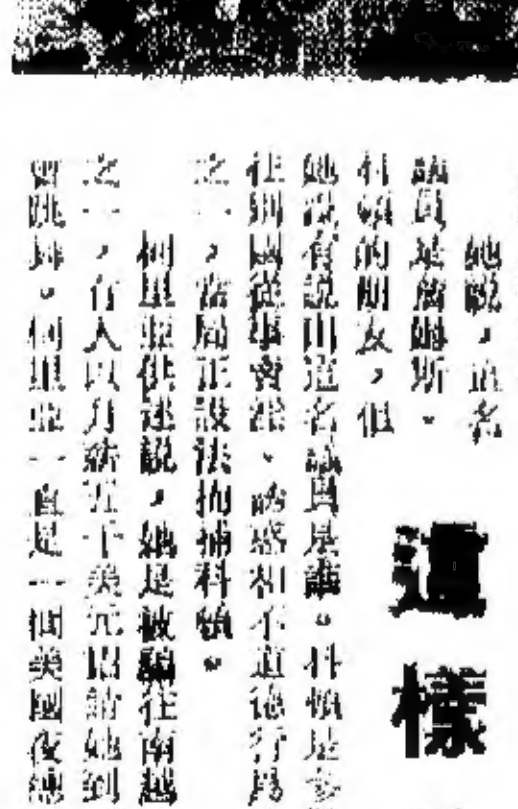 她說，這名
議員是詹姆斯·
科頓的朋友，但
她沒有說出這名議員是誰。科頓是多
往別國從事賣淫、誘惑和不道德行爲
之一，當局正設法拘捕科頓。
柯里亞供述說，她是被騙往南越
之一，有人以月薪五千美元招請她到
跳舞。柯里亞一直是一個美國後總
這樣